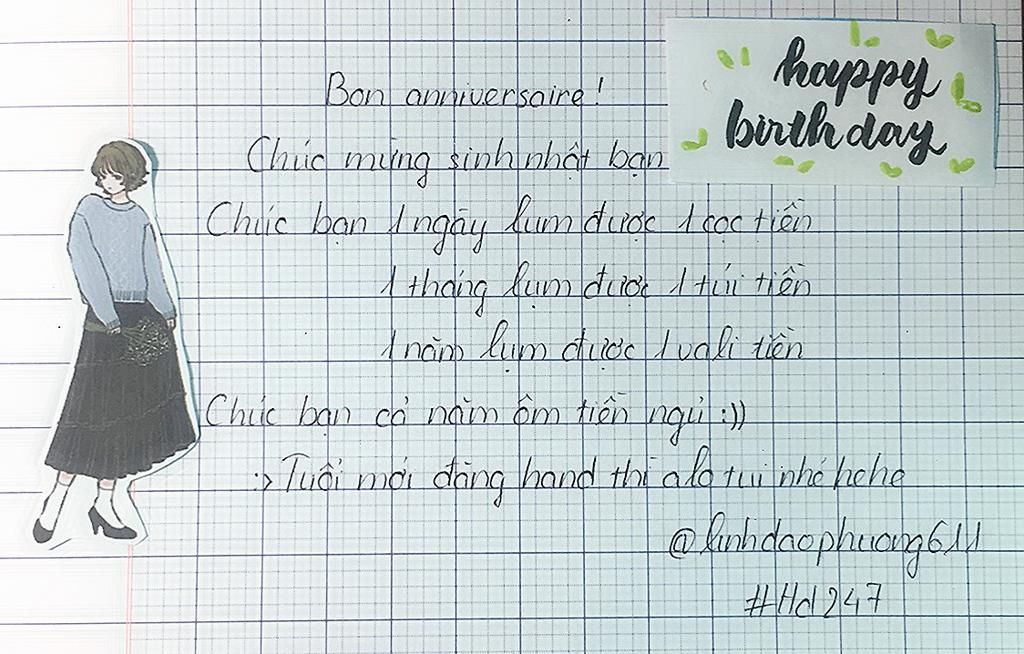 happy
birthday
Bon anniversaire!
Chúc mừng sinh nhật bạn
Chúc bạn 1 ngày lụm được 1 cọc tiền
1 tháng lụm được 1 túi tiền
1 năm lụm được 1 vali tiền
Chúc bạn cả năm ôm tiền ngủ :))
:> Tuổi mới đăng hand thì alo tui nhé hehe
@linhdaophuong611
#Hd247